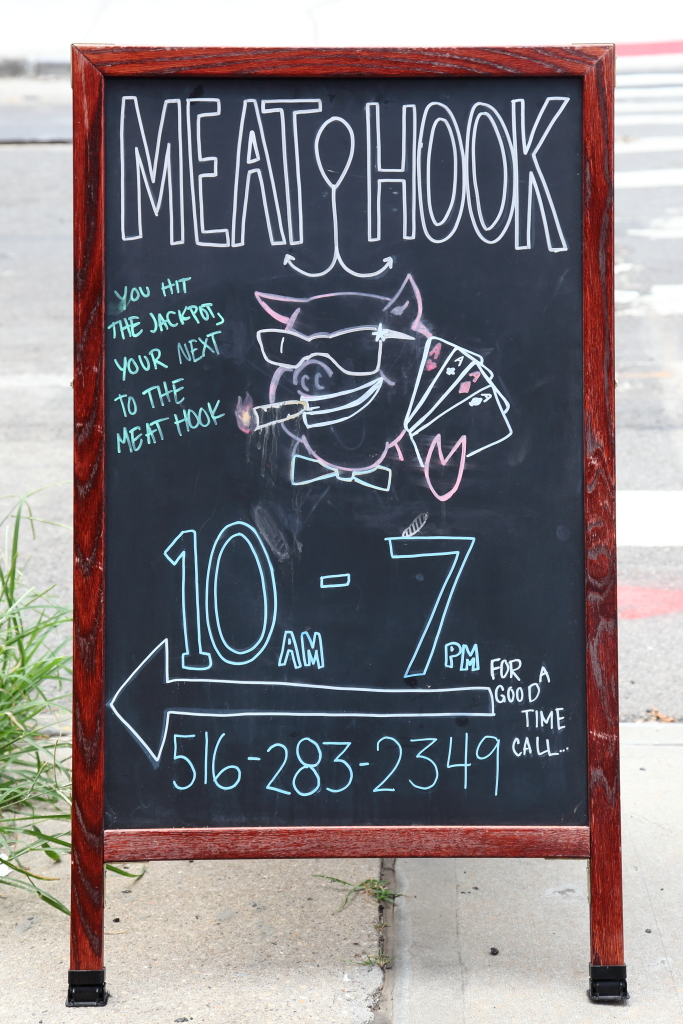 MEAT HOOK
YOU HIT
THE JACKPOT,
YOUR NEXT
TO THE
MEAT HOOK
A A A A
10 AM - 7 PM
FOR A
GOOD
TIME
CALL...
516-283-2349